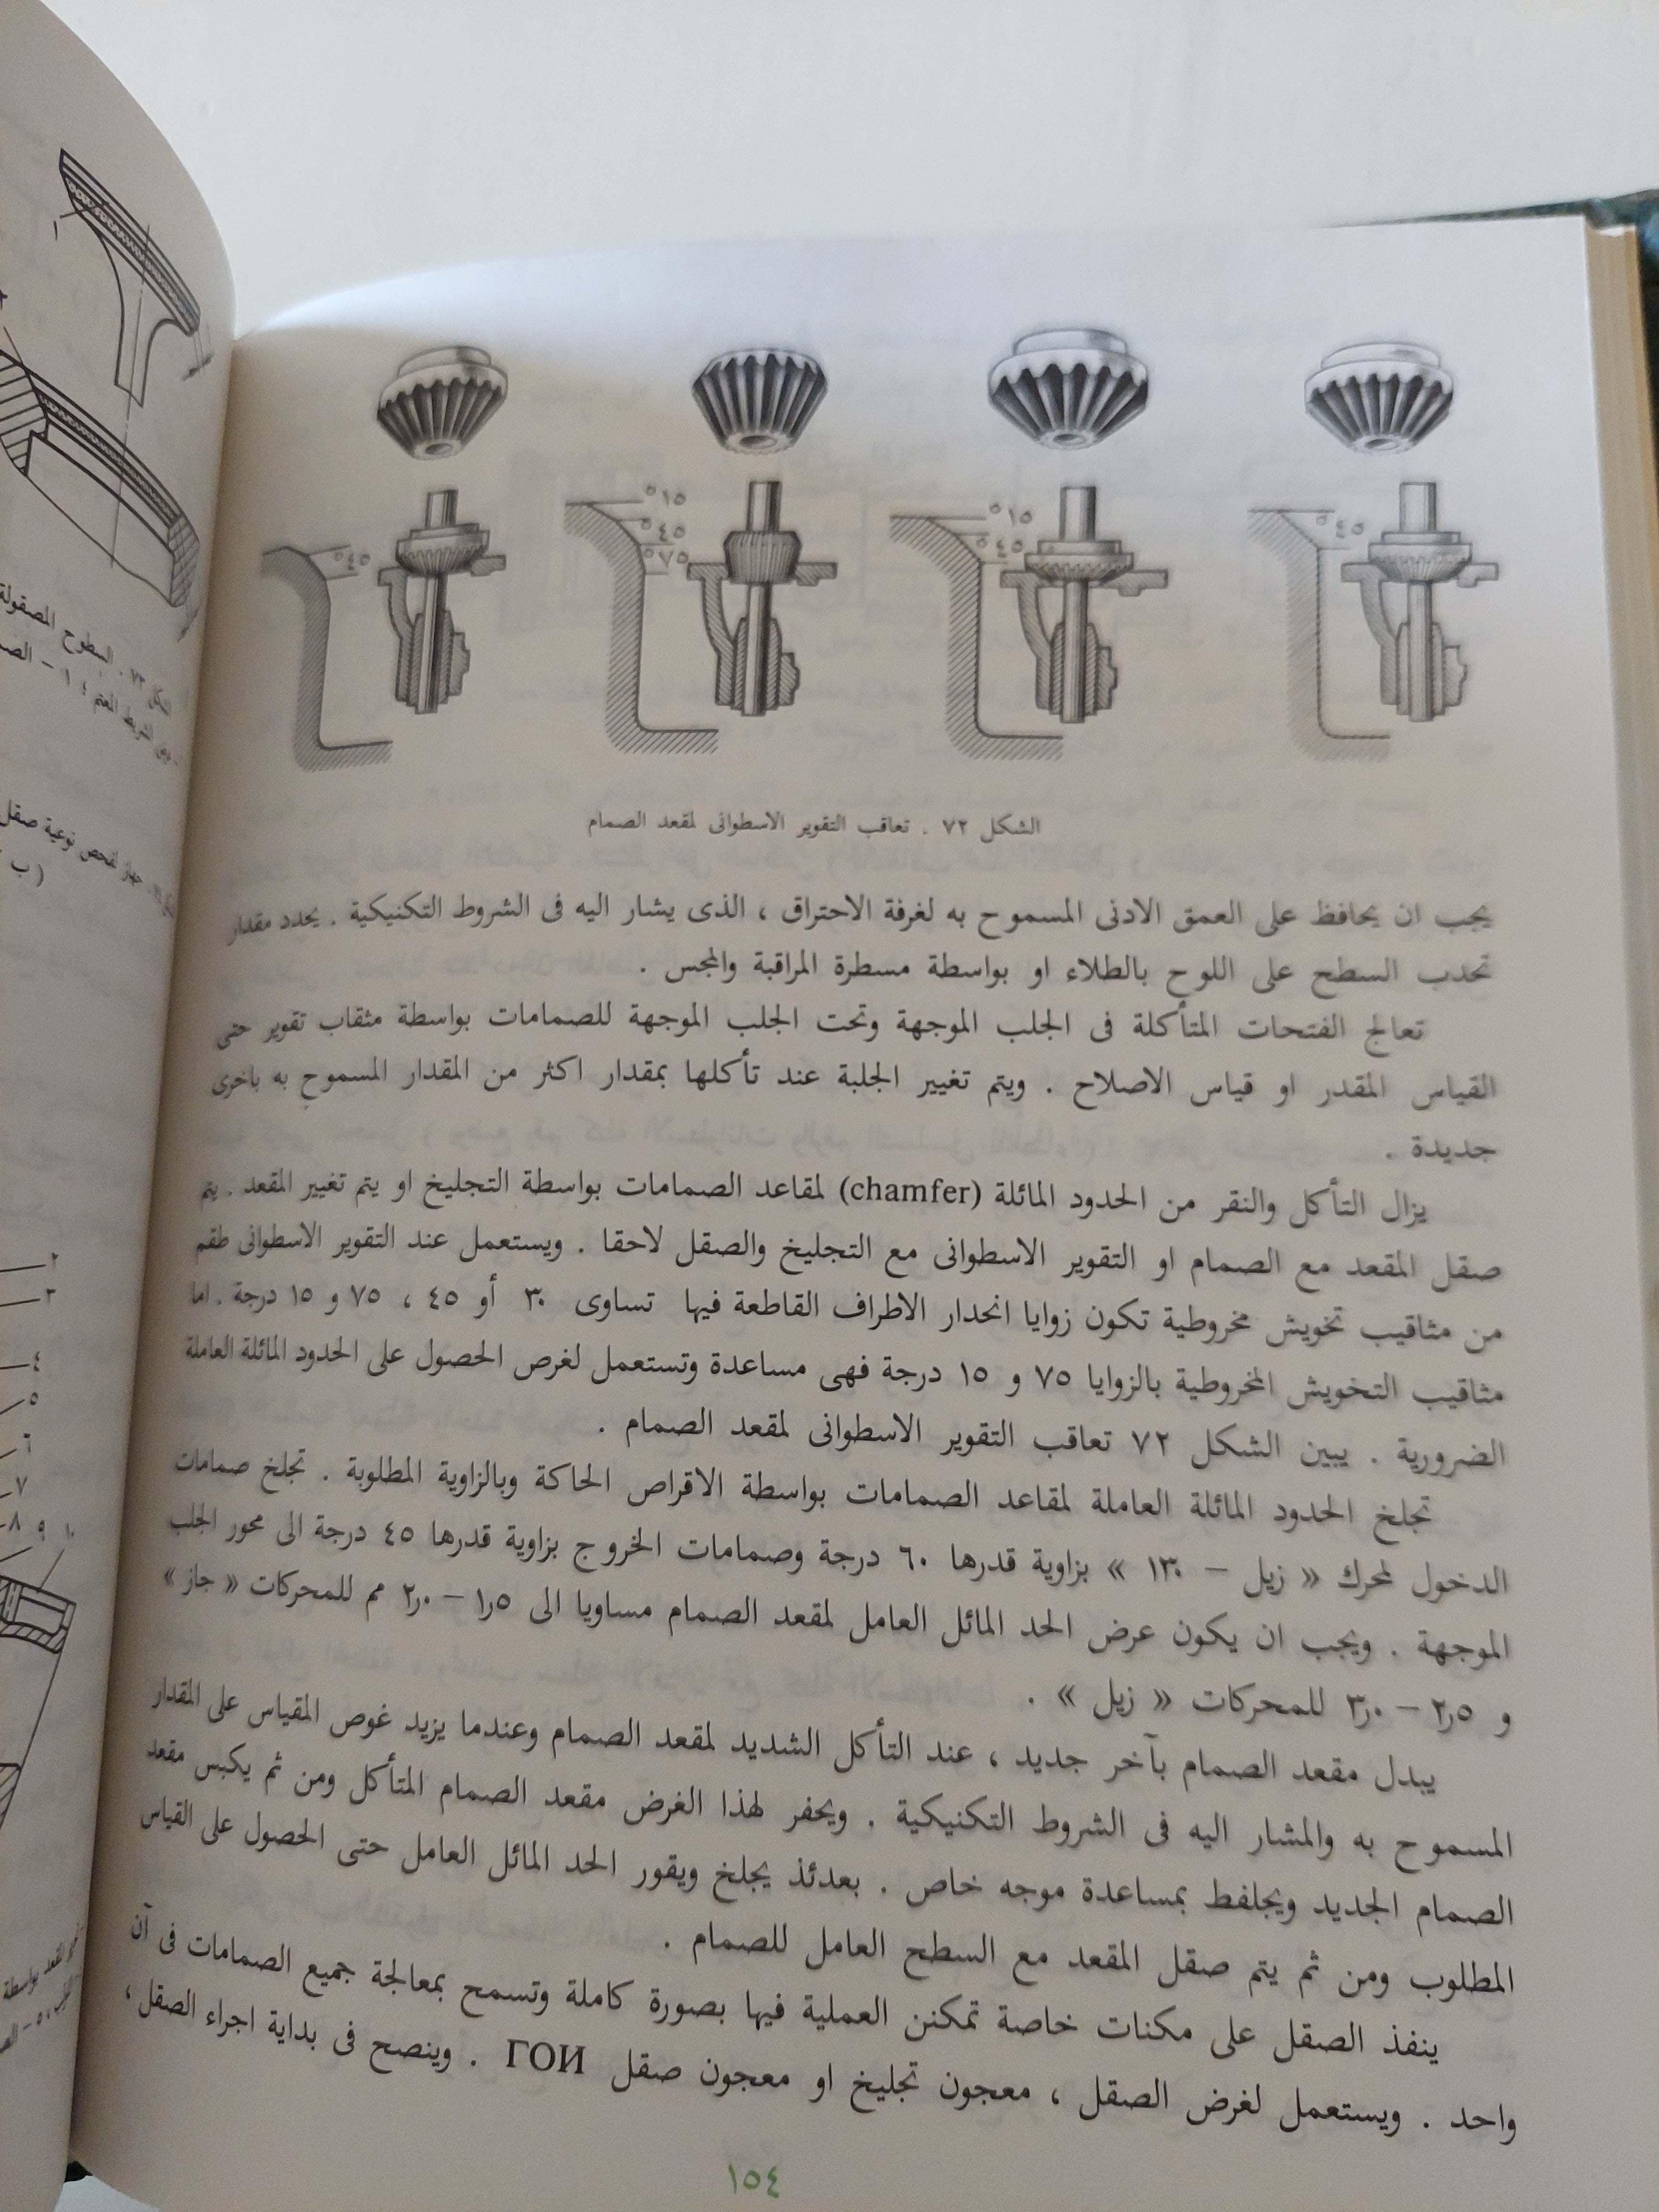 °٤٥
°١٥
°٤٥
°١٥
°٤٥
°٧٥
°٤٥
الشكل ٧٢ . تعاقب التقوير الاسطوانى لمقعد الصمام
يجب ان يحافظ على العمق الادنى المسموح به لغرفة الاحتراق ، الذى يشار اليه فى الشروط التكنيكية . يحدد مقدار
تحدب السطح على اللوح بالطلاء او بواسطة مسطرة المراقبة والمجس .
تعالج الفتحات المتأكلة فى الجلب الموجهة وتحت الجلب الموجهة للصمامات بواسطة مثقاب تقوير حتى
القياس المقدر او قياس الاصلاح . ويتم تغيير الجلبة عند تأكلها بمقدار اكثر من المقدار المسموح به باخرى
جديدة .
يزال التأكل والنقر من الحدود المائلة (chamfer) لمقاعد الصمامات بواسطة التجليخ او يتم تغيير المقعد . يتم
صقل المقعد مع الصمام او التقوير الاسطوانى مع التجليخ والصقل لاحقا . ويستعمل عند التقوير الاسطوانى طقم
من مثاقيب تخويش مخروطية تكون زوايا انحدار الاطراف القاطعة فيها تساوى ٣٠ أو ٤٥ ، ٧٥ و ١٥ درجة . اما
مثاقيب التخويش المخروطية بالزوايا ٧٥ و ١٥ درجة فهى مساعدة وتستعمل لغرض الحصول على الحدود المائلة العاملة
الضرورية . يبين الشكل ٧٢ تعاقب التقوير الاسطوانى لمقعد الصمام .
تجلخ الحدود المائلة العاملة لمقاعد الصمامات بواسطة الاقراص الحاكة وبالزاوية المطلوبة . تجلخ صمامات
الدخول لمحرك « زيل – ١٣٠ » بزاوية قدرها ٦٠ درجة وصمامات الخروج بزاوية قدرها ٤٥ درجة الى محور الجلب
الموجهة . ويجب ان يكون عرض الحد المائل العامل لمقعد الصمام مساويا الى ١٫٥ – ٢٫٠ مم للمحركات « جاز »
و ٢٫٥ – ٣٫٠ للمحركات « زيل » .
يبدل مقعد الصمام بآخر جديد ، عند التأكل الشديد لمقعد الصمام وعندما يزيد غوص المقياس على المقدار
المسموح به والمشار اليه فى الشروط التكنيكية . ويحفر لهذا الغرض مقعد الصمام المتأكل ومن ثم يكبس مقعد
الصمام الجديد ويجلفط بمساعدة موجه خاص . بعدئذ يجلخ ويقور الحد المائل العامل حتى الحصول على القياس
المطلوب ومن ثم يتم صقل المقعد مع السطح العامل للصمام .
ينفذ الصقل على مكنات خاصة تمكنن العملية فيها بصورة كاملة وتسمح بمعالجة جميع الصمامات فى آن
واحد . ويستعمل لغرض الصقل ، معجون تجليخ او معجون صقل ГОИ . وينصح فى بداية اجراء الصقل ،
١٥٤
١
٧٣ . السطوح المصقولة
الشريط المعتم ؛ ١ –
جهاز لفحص نوعية صقل
( ب
٢
٣
٤
٥
٦
٧
٨ ٩ ١٠
المقعد بواسطة